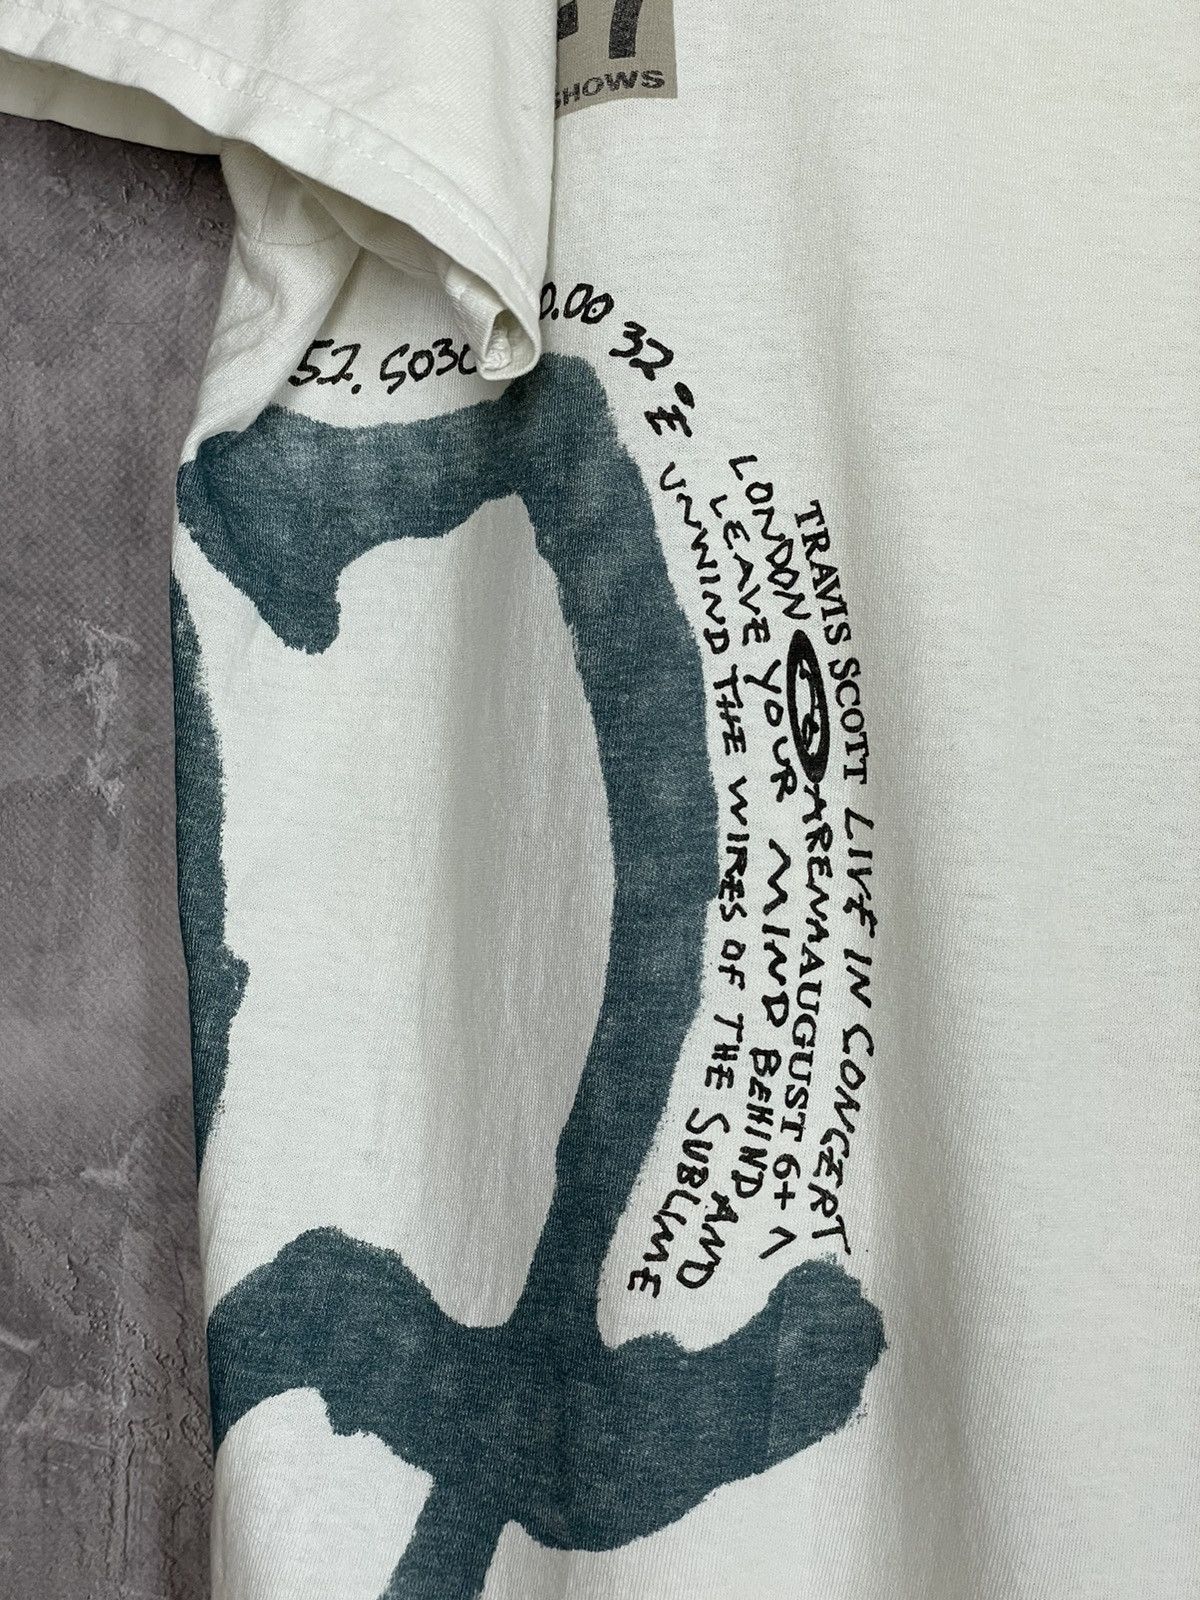 SHOWS
0.00 32°E
TRAVIS SCOTT LIVE IN CONCERT
LONDON ARENA AUGUST 6+
LEAVE YOUR MIND BEHIND AND
UNWIND THE WIRES OF THE SUBLIME